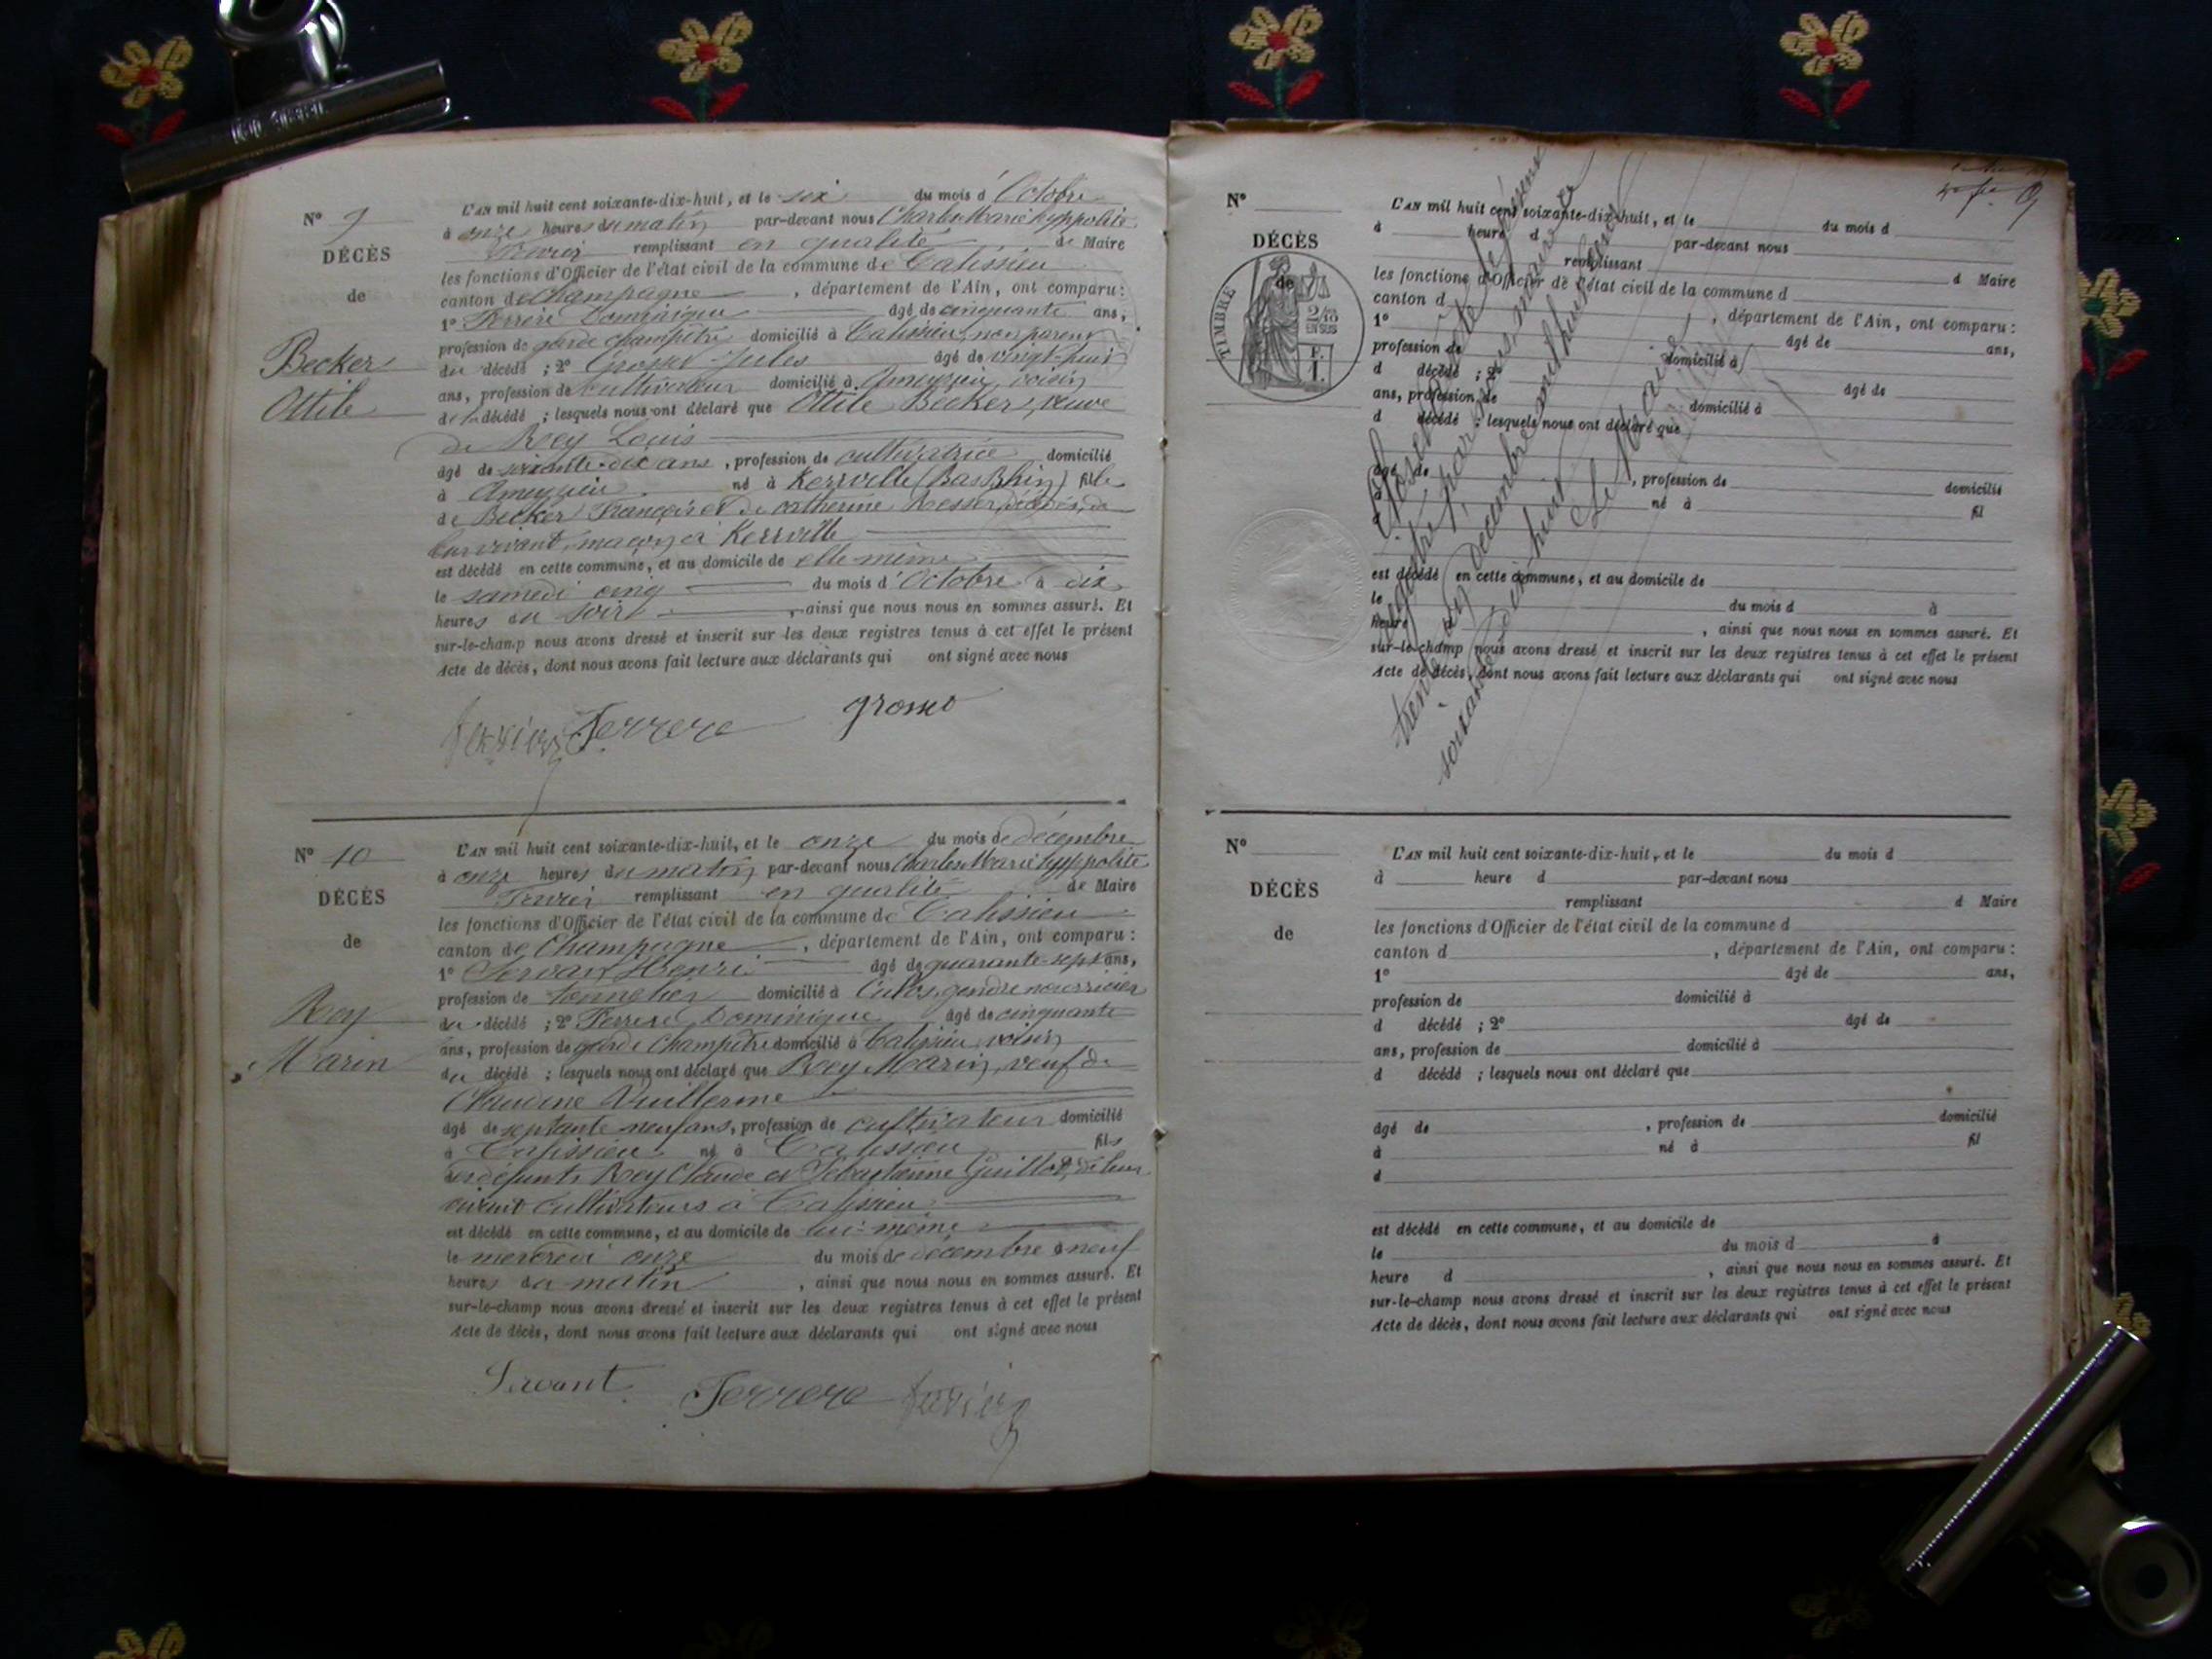 N° 9
DÉCÈS
de
Becker
Ottile
L'AN mil huit cent soixante-dix-huit, et le six du mois d'Octobre
à onze heures du matin par-devant nous Charles Marie hyppolite
remplissant en qualité de Maire
les fonctions d'Officier de l'état civil de la commune de Talissieu
canton de Champagne, département de l'Ain, ont comparu :
1° Ferrere Dominique âgé de cinquante ans,
profession de garde champêtre domicilié à Talissieu, non parent
du décédé ; 2° Grosset Jules âgé de vingt-huit
ans, profession de cultivateur domicilié à Ameyzieu, voisin
de la décédé ; lesquels nous ont déclaré que Ottile Becker, veuve
de Rey Louis
âgé de soixante-dix ans, profession de cultivatrice domicilié
à Ameyzieu né à Kerrville (Bas Rhin) fille
de Becker François et de catherine Resser, décédés, de
leur vivant, maçon à Kerrville
est décédé en cette commune, et au domicile de elle-même
le samedi cinq du mois d'Octobre à dix
heures du soir, ainsi que nous nous en sommes assuré. Et
sur-le-champ nous avons dressé et inscrit sur les deux registres tenus à cet effet le présent
Acte de décès, dont nous avons fait lecture aux déclarants qui ont signé avec nous
Ferrere grosset
N° 10
DÉCÈS
de
Rey
Marin
L'AN mil huit cent soixante-dix-huit, et le onze du mois de décembre
à onze heures du matin par-devant nous Charles Marie hyppolite
remplissant en qualité de Maire
les fonctions d'Officier de l'état civil de la commune de Talissieu
canton de Champagne, département de l'Ain, ont comparu :
1° Servant Henri âgé de quarante-sept ans,
profession de tonnelier domicilié à Culoz, gendre nourricier
du décédé ; 2° Ferrere Dominique âgé de cinquante
ans, profession de garde Champêtre domicilié à Talissieu, voisin
du décédé ; lesquels nous ont déclaré que Rey Marin, veuf de
Claudine Vuillerme
âgé de septante neuf ans, profession de cultivateur domicilié
à Talissieu né à Talissieu fils
des défunts Rey Claude et Sébastienne Guillot, de leur
vivant cultivateurs à Talissieu
est décédé en cette commune, et au domicile de lui-même
le mercredi onze du mois de décembre à neuf
heures du matin, ainsi que nous nous en sommes assuré. Et
sur-le-champ nous avons dressé et inscrit sur les deux registres tenus à cet effet le présent
Acte de décès, dont nous avons fait lecture aux déclarants qui ont signé avec nous
Servant Ferrere
N°
DÉCÈS
de
TIMBRE
2/10
EN SUS
L'AN mil huit cent soixante-dix-huit, et le du mois d
à heure d par-devant nous
remplissant d Maire
les fonctions d'Officier de l'état civil de la commune d
canton d, département de l'Ain, ont comparu :
1° âgé de ans,
profession de domicilié à
d décédé ; 2° âgé de
ans, profession de domicilié à
d décédé ; lesquels nous ont déclaré que
âgé de, profession de domicilié
à né à fil
d
est décédé en cette commune, et au domicile de
le du mois d à
heure d, ainsi que nous nous en sommes assuré. Et
sur-le-champ nous avons dressé et inscrit sur les deux registres tenus à cet effet le présent
Acte de décès, dont nous avons fait lecture aux déclarants qui ont signé avec nous
Clos et le présent
registre par nous, maire
trente un décembre mil huit cent
soixante dix-huit
Le Maire
N°
DÉCÈS
de
L'AN mil huit cent soixante-dix-huit, et le du mois d
à heure d par-devant nous
remplissant d Maire
les fonctions d'Officier de l'état civil de la commune d
canton d, département de l'Ain, ont comparu :
1° âgé de ans,
profession de domicilié à
d décédé ; 2° âgé de
ans, profession de domicilié à
d décédé ; lesquels nous ont déclaré que
âgé de, profession de domicilié
à né à fil
d
est décédé en cette commune, et au domicile de
le du mois d à
heure d, ainsi que nous nous en sommes assuré. Et
sur-le-champ nous avons dressé et inscrit sur les deux registres tenus à cet effet le présent
Acte de décès, dont nous avons fait lecture aux déclarants qui ont signé avec nous